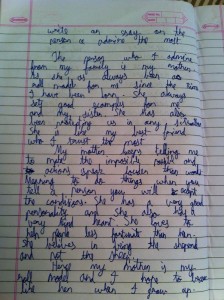 write an essay on the
person u admire the most
The person who I admire
from my family is my mother
As she as always been so
role model for me since the time
I have been born. She always
sets good examples for me
and my sister. She has also
been motivating us in any situation
She is like my best friend
who I trust the most
My mother keeps telling me
to make the impossible possible and
actions speak louder than words
Meaning to do things when you
tell a person you will
the conditions. She has a very good
personality and She also has a
very kind heart. She loves to
help people less fortunate than her.
She believes in giving the
and not the
Hence my mother is my
roll model and I hope to be
like her when I grow up.